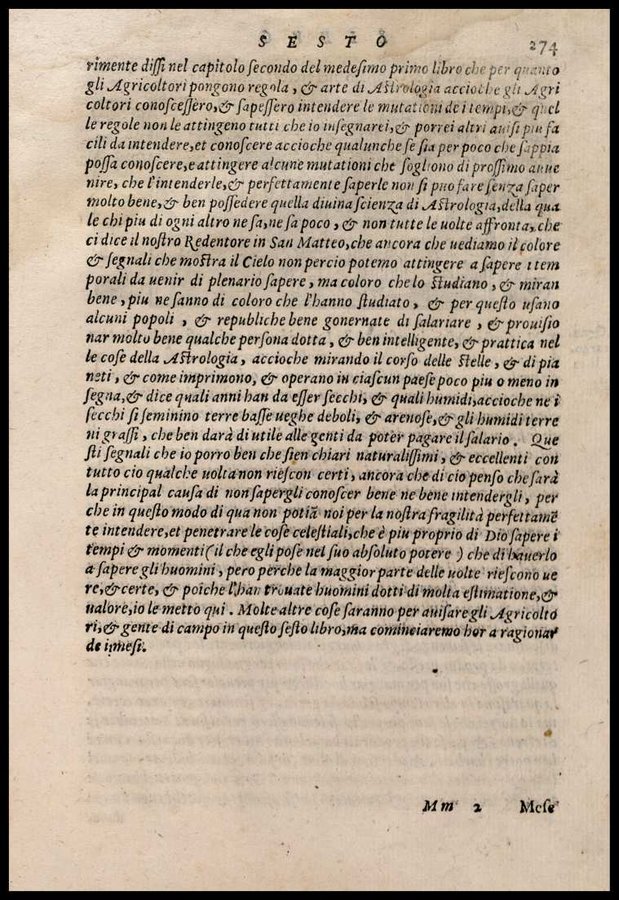 SESTO 274
rimente dissi nel capitolo secondo del medesimo primo libro che per quanto
gli Agricoltori pongono regola, & arte di Astrologia accioche gli Agri
coltori conoscessero,& sapessero intendere le mutationi de i tempi,& quel
le regole non le attingeno tutti che io insegnarei,& porrei altri auisi piu fa
cili da intendere,et conoscere accioche qualunche se sia per poco che sappia
possa conoscere,e attingere alcune mutationi che sogliono di prossimo auue
nire, che l'intenderle,& perfettamente saperle non si puo fare senza saper
molto bene,& ben possedere quella diuina scienza di Astrologia,della qua
le chi piu di ogni altro ne sa,ne sa poco, & non tutte le uolte affronta,che
ci dice il nostro Redentore in San Matteo,che ancora che uediamo il colore
& segnali che mostra il Cielo non percio potemo attingere a sapere i tem
porali da uenir di plenario sapere, ma coloro che lo studiano, & miran
bene, piu ne sanno di coloro che l'hanno studiato, & per questo usano
alcuni popoli, & republiche bene gonernate di salariare, & prouisio
nar molto bene qualche persona dotta, & ben intelligente, & prattica nel
le cose della Astrologia, accioche mirando il corso delle stelle, & di pia
neti, & come imprimono, & operano in ciascun paese poco piu o meno in
segna,& dice quali anni han da esser secchi, & quali humidi,accioche ne i
secchi si seminino terre basse ueghe deboli, & arenose,& gli humidi terre
ni grassi, che ben darà di utile alle genti da poter pagare il salario. Que
sti segnali che io porro ben che sien chiari naturalissimi, & eccellenti con
tutto cio qualche uolta non riescon certi, ancora che di cio penso che sarà
la principal causa di non sapergli conoscer bene ne bene intendergli, per
che in questo modo di qua non potiã noi per la nostra fragilità perfettamẽ
te intendere,et penetrare le cose celestiali,che è piu proprio di Dio sapere i
tempi & momenti (il che egli pose nel suo absoluto potere) che di hauerlo
a sapere gli huomini, pero perche la maggior parte delle uolte riescono ue
re,& certe, & poiche l'han trouate huomini dotti di molta estimatione,&
ualore,io le metto qui. Molte altre cose saranno per auisare gli Agricolto
ri,& gente di campo in questo sesto libro,ma cominciaremo hor a ragionar
de i mesi.
Mm 2 Mese